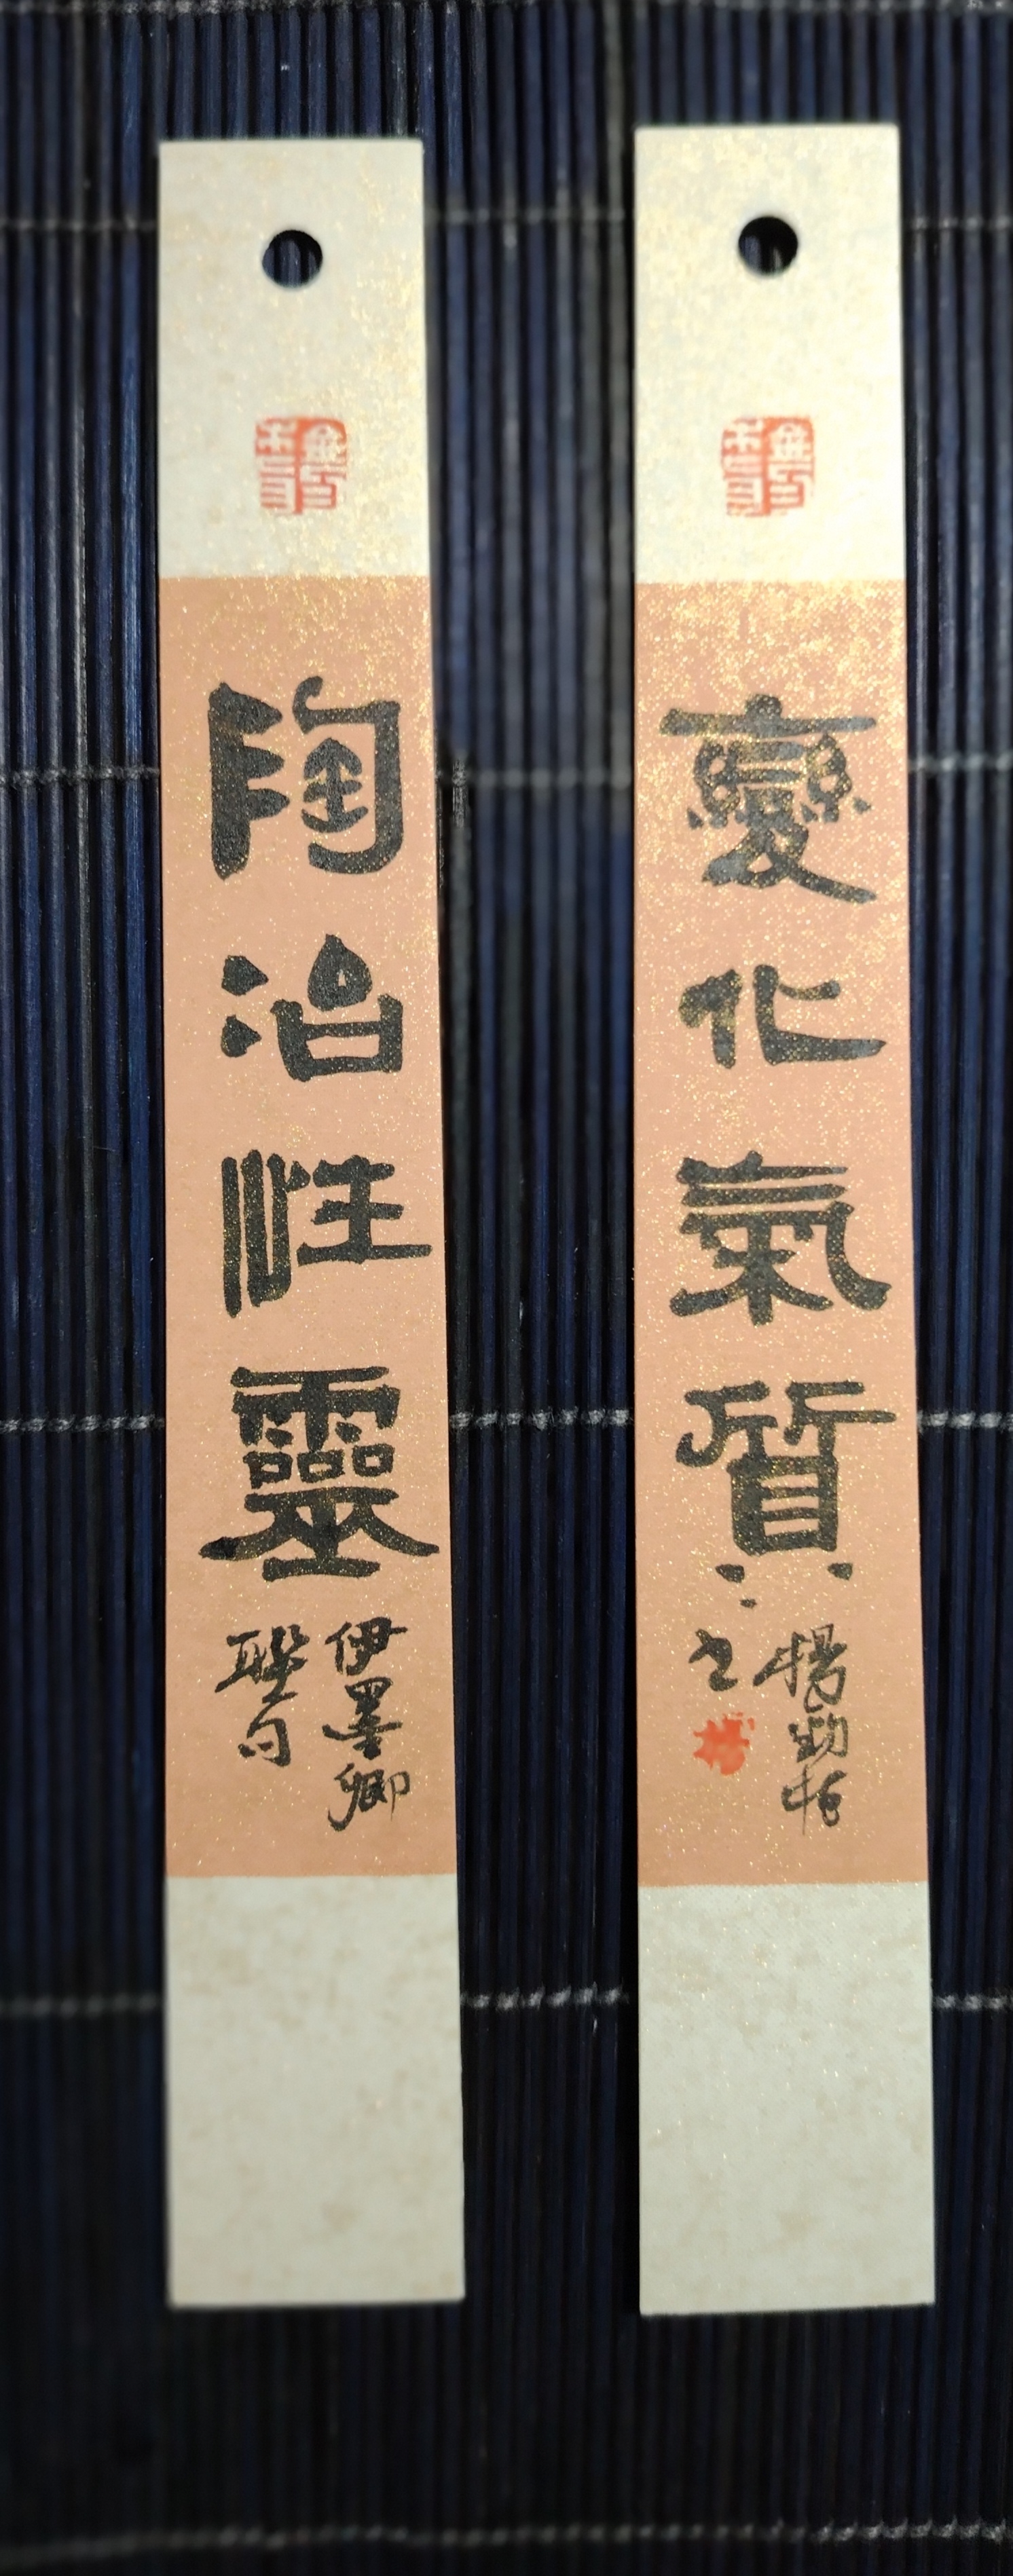 變化氣質
楊勁
書
陶冶性靈
伊墨卿
聯句